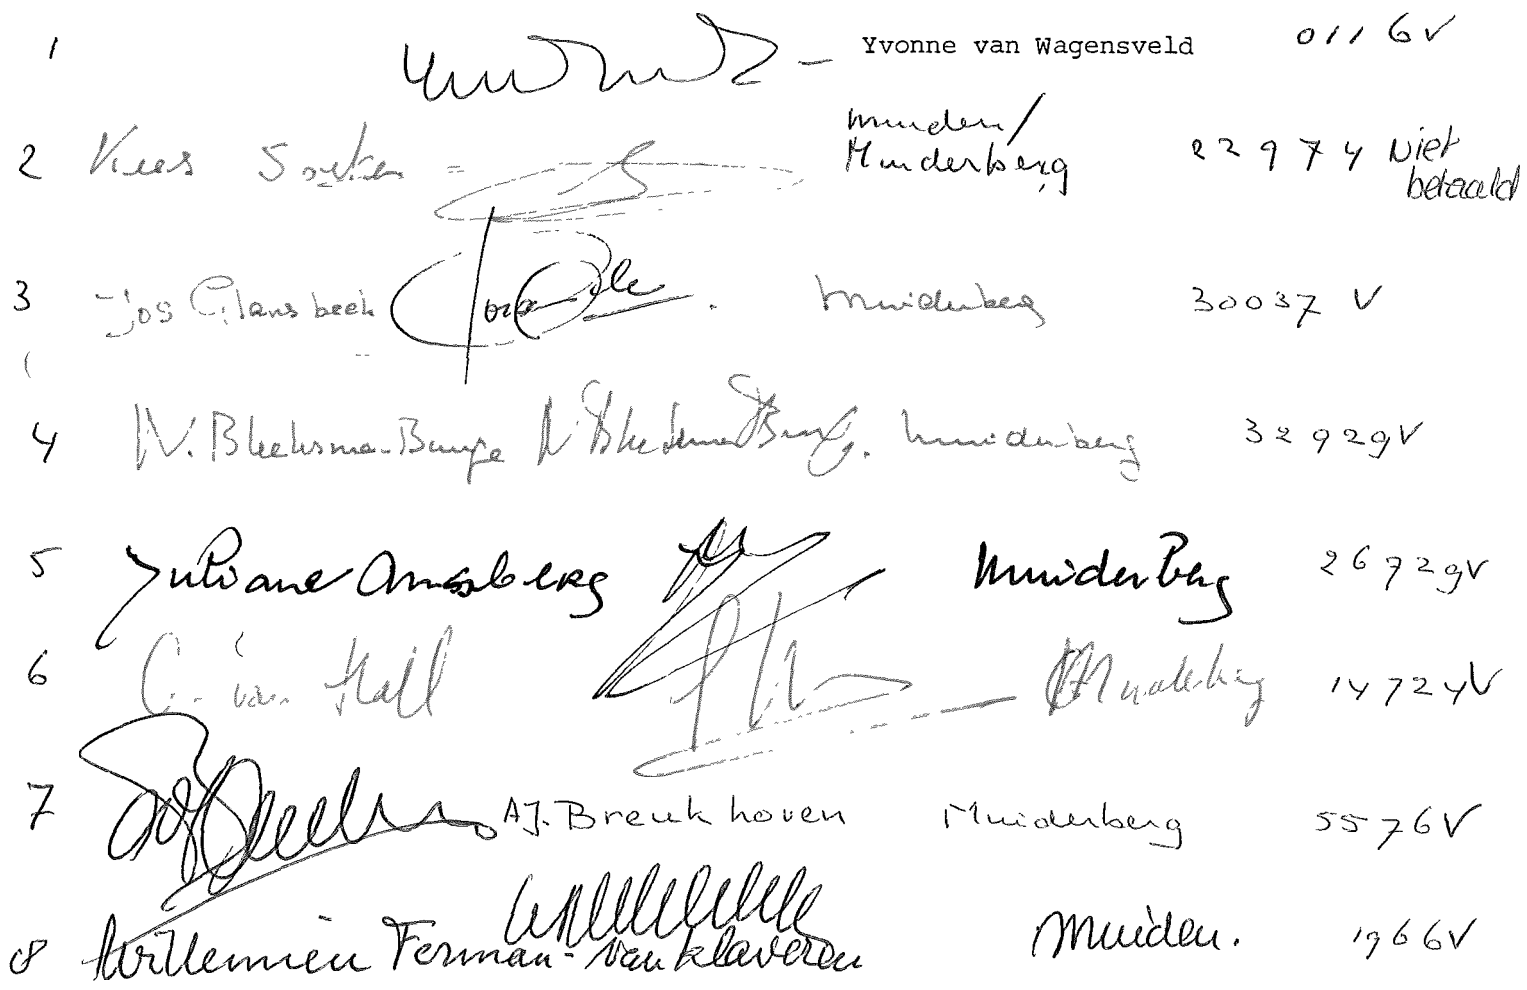 1 Yvonne van Wagensveld 0116 V
2 Kees Muiden/
Muiderberg 22974 Niet
betaald
3 Jos Glansbeek Muiderberg 30037 V
4 N. Bleeksma-Bunge Muiderberg 32929 V
5 Juliane Amsberg Muiderberg 26729 V
6 C. van Hall Muiderberg 14724 V
7 A.J. Breukhoven Muiderberg 5576 V
8 Willemien Ferman-van Klaveren Muiden. 1966 V